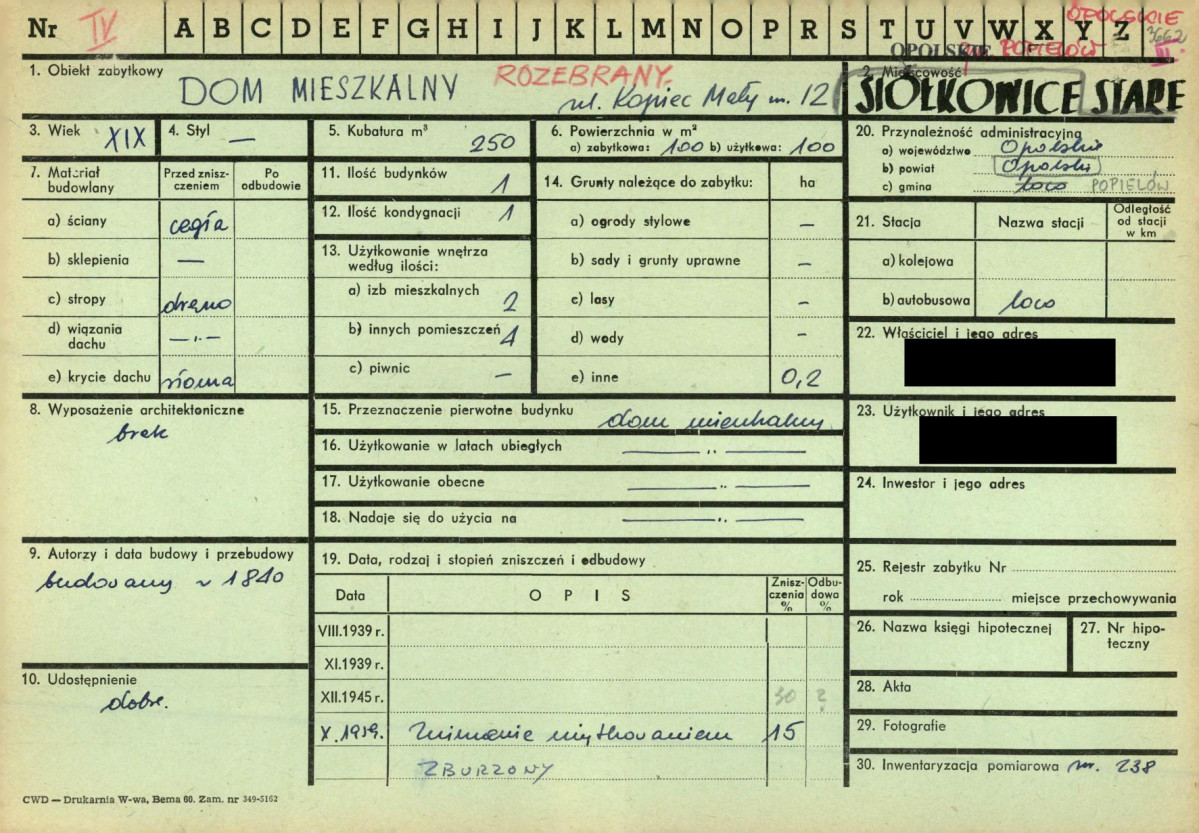 Nr IV A B C D E F G H I J K L M N O P R S T U V W X Y Z
OPOLSKIE
3662
III
OPOLSKIE POPIELÓW
1. Obiekt zabytkowy
DOM MIESZKALNY
ROZEBRANY.
ul. Kopiec Mały nr. 12
2. Miejscowość
SIOŁKOWICE STARE
3. Wiek XIX
4. Styl —
5. Kubatura m³ 250
6. Powierzchnia w m²
a) zabytkowa: 100 b) użytkowa: 100
7. Materiał budowlany
Przed zniszczeniem
Po odbudowie
a) ściany cegła
b) sklepienia —
c) stropy drewno
d) wiązania dachu —„—
e) krycie dachu słoma
8. Wyposażenie architektoniczne
brak
9. Autorzy i data budowy i przebudowy
budowany ~ 1840
10. Udostępnienie
dobre.
11. Ilość budynków 1
12. Ilość kondygnacji 1
13. Użytkowanie wnętrza według ilości:
a) izb mieszkalnych 2
b) innych pomieszczeń 1
c) piwnic —
14. Grunty należące do zabytku: ha
a) ogrody stylowe —
b) sady i grunty uprawne —
c) lasy -
d) wody -
e) inne 0,2
15. Przeznaczenie pierwotne budynku dom mieszkalny
16. Użytkowanie w latach ubiegłych —„—
17. Użytkowanie obecne —„—
18. Nadaje się do użycia na —„—
19. Data, rodzaj i stopień zniszczeń i odbudowy
Data
OPIS
Zniszczenia %
Odbudowa %
VIII.1939 r.
XI.1939 r.
XII.1945 r. 30 2
X.1959. Zniszczenie użytkowaniem 15
ZBURZONY
20. Przynależność administracyjna
a) województwo Opolskie
b) powiat Opolski
c) gmina loco POPIELÓW
21. Stacja
Nazwa stacji
Odległość od stacji w km
a) kolejowa
b) autobusowa loco
22. Właściciel i jego adres
23. Użytkownik i jego adres
24. Inwestor i jego adres
25. Rejestr zabytku Nr
rok miejsce przechowywania
26. Nazwa księgi hipotecznej
27. Nr hipoteczny
28. Akta
29. Fotografie
30. Inwentaryzacja pomiarowa nr. 238
CWD — Drukarnia W-wa, Bema 60. Zam. nr 349-5162